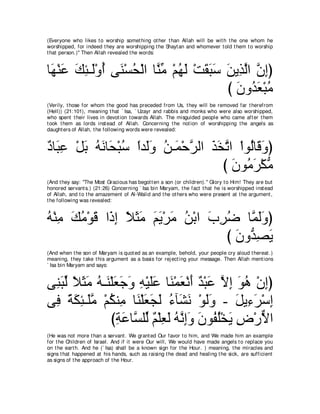 (Everyone who likes to worship something other than Allah will be with the one whom he
worshipped, for indeed they are worshipping the Shaytan and whomever told them to worship
that person.)" Then Allah revealed the words:
(إِنَّ الَّذِينَ سَبَقَتْ لَهُمْ مِّنَّا الْحُسْنَى أُوْلَـئِكَ عَنْهَا
مُبْعَدُونَ )
(Verily, those for whom the good has preceded from Us, they will be removed far therefrom
(Hell)) (21:101), meaning that `Isa, `Uzayr and rabbis and monks who were also worshipped,
who spent their lives in devotion towards Allah. The misguided people who came after them
took them as lords instead of Allah. Concerning the notion of worshipping the angels as
daughters of Allah, the following words were revealed:
(وَقَالُواْ اتَّخَذَ الرَّحْمَـنُ وَلَداً سُبْحَانَهُ بَلْ عِبَادٌ
مُّكْرَمُونَ )
(And they say: "The Most Gracious has begotten a son (or children)." Glory to Him! They are but
honored servants.) (21:26) Concerning `Isa bin Maryam, the fact that he is worshipped instead
of Allah, and to the amazement of Al-Walid and the others who were present at the argument,
the following was revealed:
(وَلَمَّا ضُرِبَ ابْنُ مَرْيَمَ مَثَلاً إِذَا قَوْمُكَ مِنْهُ
يَصِدُّونَ )
(And when the son of Maryam is quoted as an example, behold, your people cry aloud thereat.)
meaning, they take this argument as a basis for rejecting your message. Then Allah mentions
`Isa bin Maryam and says:
(إِنْ هُوَ إِلاَّ عَبْدٌ أَنْعَمْنَا عَلَيْهِ وَجَعَلْنَـهُ مَثَلاً لِّبَنِى
إِسْرَءِيلَ - وَلَوْ نَشَآءُ لَجَعَلْنَا مِنكُمْ مَّلَـئِكَةً فِى
الاٌّرْضِ يَخْلُفُونَ وَإِنَّهُ لَعِلْمٌ لِّلسَّاعَةِ)
(He was not more than a servant. We granted Our favor to him, and We made him an example
for the Children of Israel. And if it were Our will, We would have made angels to replace you
on the earth. And he (`Isa) shall be a known sign for the Hour.) meaning, the miracles and
signs that happened at his hands, such as raising the dead and healing the sick, are sufficient
as signs of the approach of the Hour.